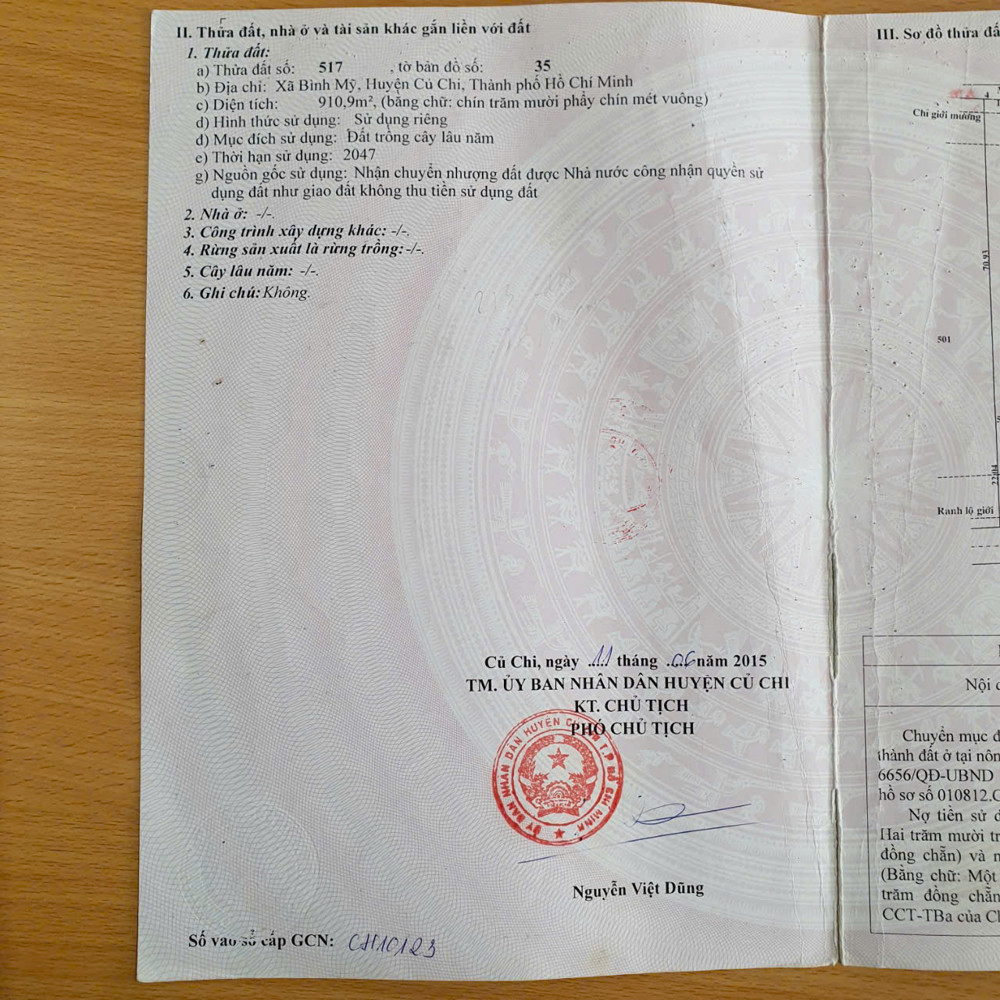 II. Thửa đất, nhà ở và tài sản khác gắn liền với đất
1. Thửa đất:
a) Thửa đất số: 517 , tờ bản đồ số: 35
b) Địa chỉ: Xã Bình Mỹ, Huyện Củ Chi, Thành phố Hồ Chí Minh
c) Diện tích: 910,9m², (bằng chữ: chín trăm mười phẩy chín mét vuông)
d) Hình thức sử dụng: Sử dụng riêng
đ) Mục đích sử dụng: Đất trồng cây lâu năm
e) Thời hạn sử dụng: 2047
g) Nguồn gốc sử dụng: Nhận chuyển nhượng đất được Nhà nước công nhận quyền sử
dụng đất như giao đất không thu tiền sử dụng đất
2. Nhà ở: -/-.
3. Công trình xây dựng khác: -/-.
4. Rừng sản xuất là rừng trồng: -/-.
5. Cây lâu năm: -/-.
6. Ghi chú: Không.
Củ Chi, ngày 11 tháng 06 năm 2015
TM. ỦY BAN NHÂN DÂN HUYỆN CỦ CHI
KT. CHỦ TỊCH
PHÓ CHỦ TỊCH
ỦY BAN NHÂN DÂN HUYỆN CỦ CHI T.P HỒ CHÍ MINH
Nguyễn Việt Dũng
Số vào sổ cấp GCN: CH10123
III. Sơ đồ thửa đấ
4
Chỉ giới mương
70.93
501
22.04
Ranh lộ giới
Nội
Chuyển mục
thành đất ở tại nôn
6656/QĐ-UBND
hồ sơ số 010812.C
Nợ tiền sử
Hai trăm mười
đồng chẵn) và
(Bằng chữ: Một
trăm đồng chẵn
CCT-TBa của